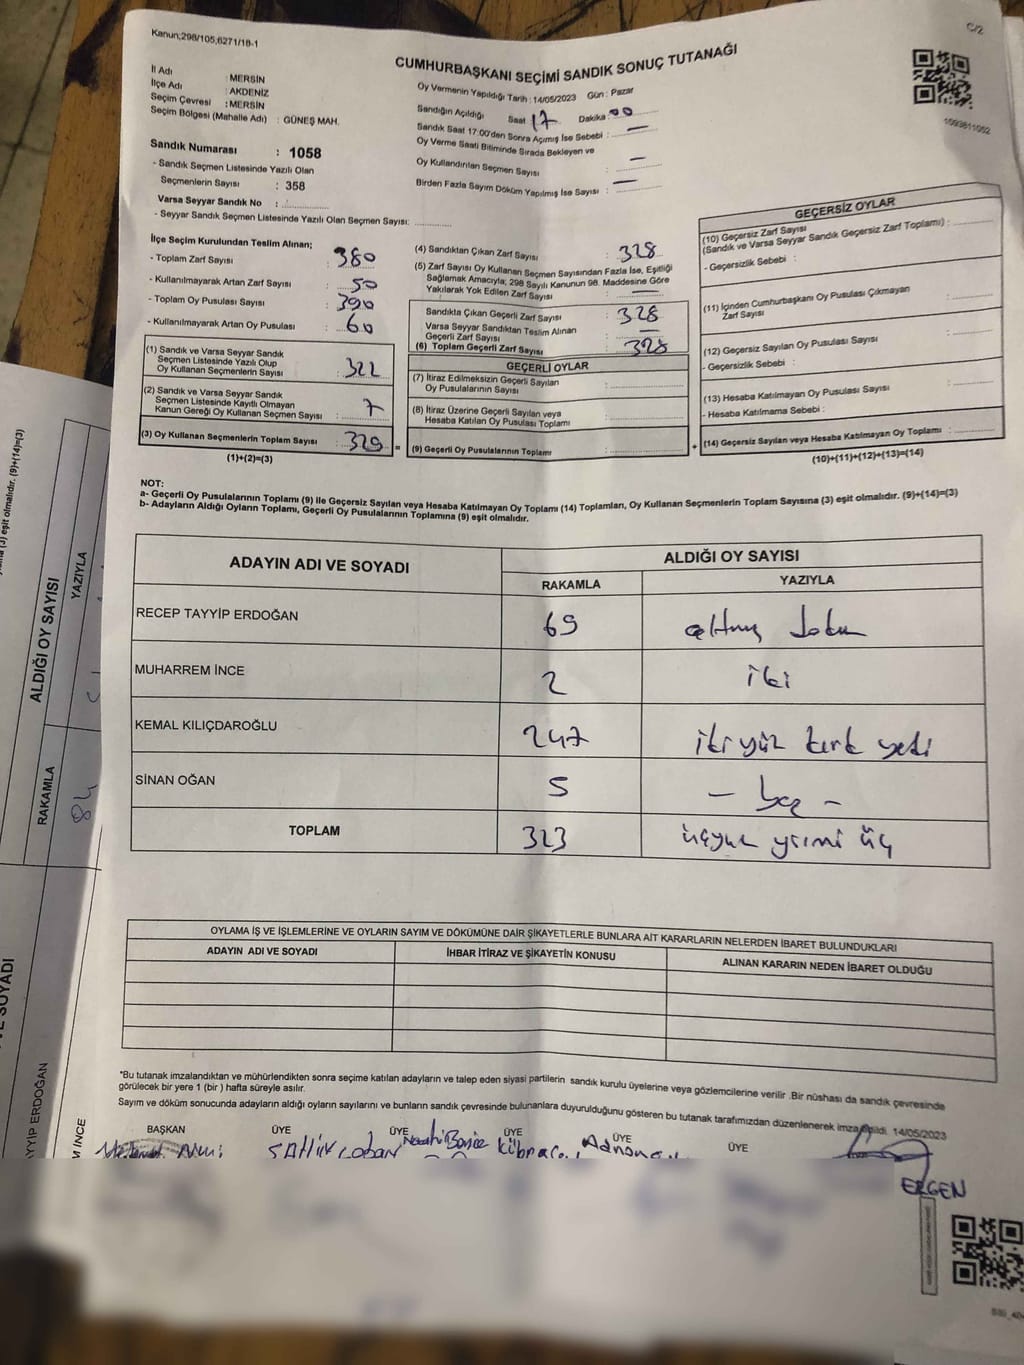 Kanun;298/105,6271/18-1
C/2
CUMHURBAŞKANI SEÇİMİ SANDIK SONUÇ TUTANAĞI
İl Adı : MERSİN
İlçe Adı : AKDENİZ
Seçim Çevresi : MERSİN
Seçim Bölgesi (Mahalle Adı) : GÜNEŞ MAH.
Oy Vermenin Yapıldığı Tarih : 14/05/2023 Gün : Pazar
Sandığın Açıldığı Saat 17 Dakika 00
Sandık Saat 17:00'den Sonra Açımış İse Sebebi : —
Oy Verme Saati Bitiminde Sırada Bekleyen ve
Oy Kullandırılan Seçmen Sayısı : —
Birden Fazla Sayım Döküm Yapılmış İse Sayısı : —
1093811052
Sandık Numarası : 1058
- Sandık Seçmen Listesinde Yazılı Olan
Seçmenlerin Sayısı : 358
Varsa Seyyar Sandık No :
- Seyyar Sandık Seçmen Listesinde Yazılı Olan Seçmen Sayısı:
İlçe Seçim Kurulundan Teslim Alınan;
- Toplam Zarf Sayısı : 380
- Kullanılmayarak Artan Zarf Sayısı : 50
- Toplam Oy Pusulası Sayısı : 390
- Kullanılmayarak Artan Oy Pusulası : 60
(1) Sandık ve Varsa Seyyar Sandık
Seçmen Listesinde Yazılı Olup
Oy Kullanan Seçmenlerin Sayısı : 322
(2) Sandık ve Varsa Seyyar Sandık
Seçmen Listesinde Kayıtlı Olmayan
Kanun Gereği Oy Kullanan Seçmen Sayısı : 7
(3) Oy Kullanan Seçmenlerin Toplam Sayısı : 329
(1)+(2)=(3)
(4) Sandıktan Çıkan Zarf Sayısı : 328
(5) Zarf Sayısı Oy Kullanan Seçmen Sayısından Fazla İse, Eşitliği
Sağlamak Amacıyla, 298 Sayılı Kanunun 98. Maddesine Göre
Yakılarak Yok Edilen Zarf Sayısı : —
Sandıkta Çıkan Geçerli Zarf Sayısı : 328
Varsa Seyyar Sandıktan Teslim Alınan
Geçerli Zarf Sayısı : —
(6) Toplam Geçerli Zarf Sayısı : 328
GEÇERLİ OYLAR
(7) İtiraz Edilmeksizin Geçerli Sayılan
Oy Pusulalarının Sayısı :
(8) İtiraz Üzerine Geçerli Sayılan veya
Hesaba Katılan Oy Pusulası Toplamı :
= (9) Geçerli Oy Pusulalarının Toplamı :
GEÇERSİZ OYLAR
(10) Geçersiz Zarf Sayısı
(Sandık ve Varsa Seyyar Sandık Geçersiz Zarf Toplamı) :
- Geçersizlik Sebebi :
(11) İçinden Cumhurbaşkanı Oy Pusulası Çıkmayan
Zarf Sayısı :
(12) Geçersiz Sayılan Oy Pusulası Sayısı :
- Geçersizlik Sebebi :
(13) Hesaba Katılmayan Oy Pusulası Sayısı :
- Hesaba Katılmama Sebebi :
+ (14) Geçersiz Sayılan veya Hesaba Katılmayan Oy Toplamı :
(10)+(11)+(12)+(13)=(14)
NOT:
a- Geçerli Oy Pusulalarının Toplamı (9) ile Geçersiz Sayılan veya Hesaba Katılmayan Oy Toplamı (14) Toplamları, Oy Kullanan Seçmenlerin Toplam Sayısına (3) eşit olmalıdır. (9)+(14)=(3)
b- Adayların Aldığı Oyların Toplamı, Geçerli Oy Pusulalarının Toplamına (9) eşit olmalıdır.
ADAYIN ADI VE SOYADI
ALDIĞI OY SAYISI
RAKAMLA
YAZIYLA
RECEP TAYYİP ERDOĞAN 69 altmış dokuz
MUHARREM İNCE 2 iki
KEMAL KILIÇDAROĞLU 247 ikiyüz kırk yedi
SİNAN OĞAN 5 - beş -
TOPLAM 323 üçyüz yirmi üç
OYLAMA İŞ VE İŞLEMLERİNE VE OYLARIN SAYIM VE DÖKÜMÜNE DAİR ŞİKAYETLERLE BUNLARA AİT KARARLARIN NELERDEN İBARET BULUNDUKLARI
ADAYIN ADI VE SOYADI
İHBAR İTİRAZ VE ŞİKAYETİN KONUSU
ALINAN KARARIN NEDEN İBARET OLDUĞU
*Bu tutanak imzalandıktan ve mühürlendikten sonra seçime katılan adayların ve talep eden siyasi partilerin sandık kurulu üyelerine veya gözlemcilerine verilir .Bir nüshası da sandık çevresinde
görülecek bir yere 1 (bir ) hafta süreyle asılır.
Sayım ve döküm sonucunda adayların aldığı oyların sayılarını ve bunların sandık çevresinde bulunanlara duyurulduğunu gösteren bu tutanak tarafımızdan düzenlenerek imza edildi. 14/05/2023
BAŞKAN ÜYE ÜYE ÜYE ÜYE ÜYE
ERGEN
(3) eşit olmalıdır. (9)+(14)=(3)
ALDIĞI OY SAYISI
YAZIYLA
RAKAMLA
84